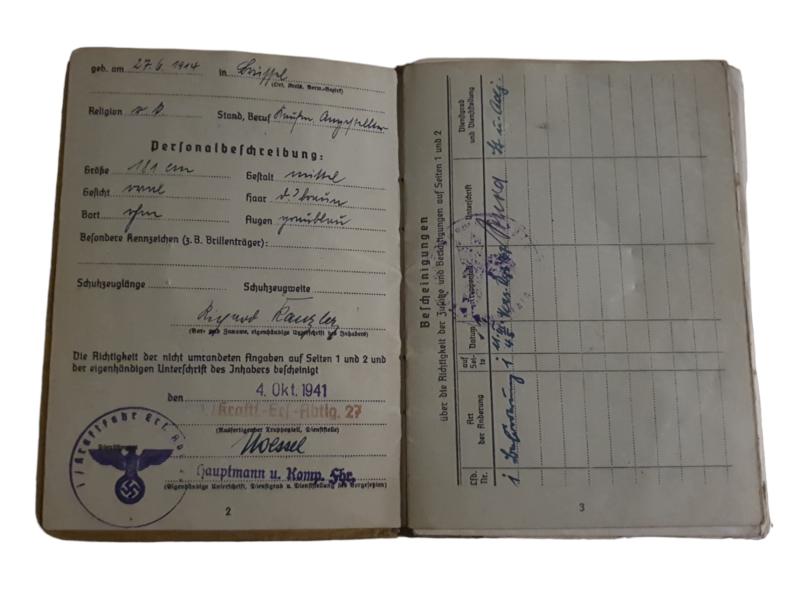 geb. am 27.6.1914 in Brüssel
(Ort, Kreis, Verw.-Bezirk)
Religion Stand, Beruf Kaufm. Angestellter
Personalbeschreibung:
Größe 181 cm Gestalt mittel
Gesicht oval Haar d. braun
Bart ohne Augen graublau
Besondere Kennzeichen (z. B. Brillenträger):
Schuhzeuglänge Schuhzeugweite
Richard Kanzler
(Vor- und Zuname, eigenhändige Unterschrift des Inhabers)
Die Richtigkeit der nicht umrandeten Angaben auf Seiten 1 und 2 und
der eigenhändigen Unterschrift des Inhabers bescheinigt
den 4. Okt. 1941
Kraftf.-Ers.-Abtlg. 27
(Ausfertigender Truppenteil, Dienststelle)
Hauptmann u. Komp. Fhr.
(Eigenhändige Unterschrift, Dienstgrad u. Dienststellung des Vorgesetzten)
2
Bescheinigungen
über die Richtigkeit der Zusätze und Berichtigungen auf Seiten 1 und 2
Lfd. Nr.
Art der Änderung
auf Seite
Datum
Truppenteil
Unterschrift
Dienstgrad und Dienststellung
1
3